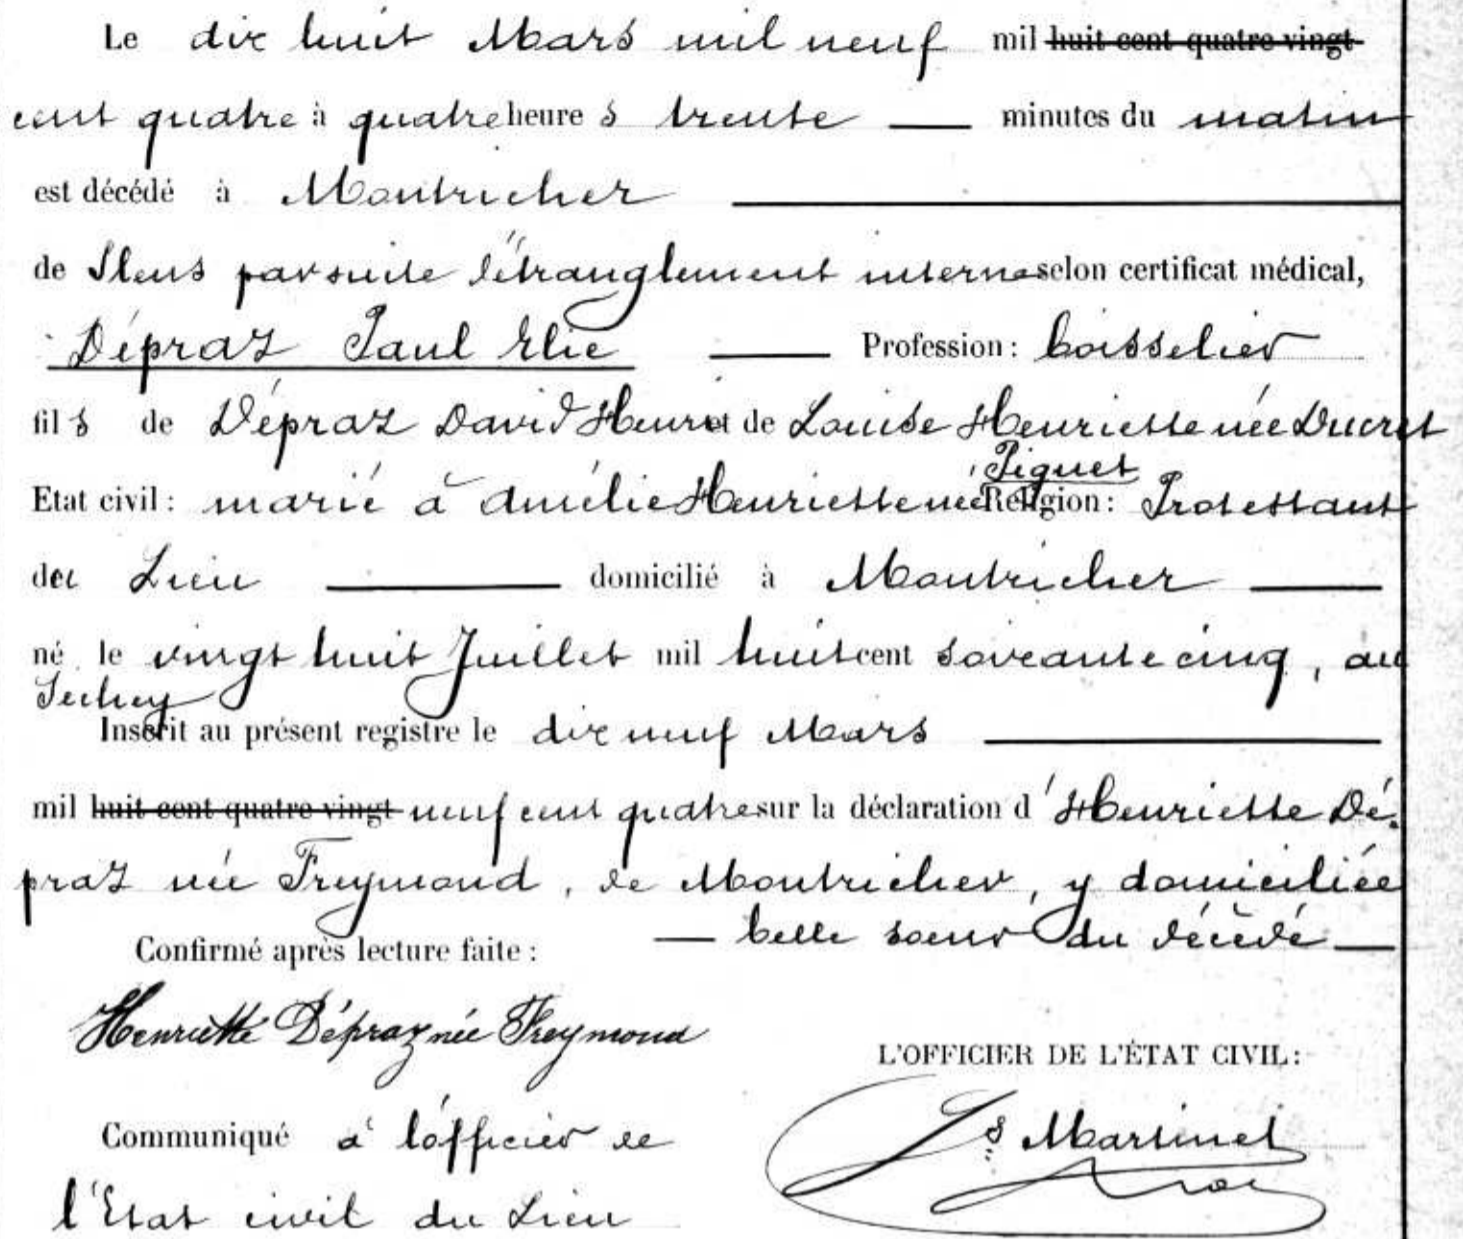 Le dix huit Mars mil neuf mil huit cent quatre-vingt
cent quatre à quatre heures trente — minutes du matin
est décédé à Montricher
de Iléus par suite d'étranglement interne selon certificat médical,
Dépraz Paul Elie — Profession: boisselier
fils de Dépraz David Henri et de Louise Henriette née Ducret
Piguet
Etat civil: marié à Amélie Henriette née Religion: Protestant
du Lieu — domicilié à Montricher —
né le vingt huit Juillet mil huit cent soixante cinq, au
Séchey
Inscrit au présent registre le dix neuf Mars
mil huit cent quatre-vingt neuf cent quatre sur la déclaration d'Henriette Dé-
praz née Freymond, de Montricher, y domiciliée
— belle soeur du décédé —
Confirmé après lecture faite:
Henriette Dépraz née Freymond
L'OFFICIER DE L'ÉTAT CIVIL:
Communiqué à l'officier de
Ls Martinet
l'Etat civil du Lieu